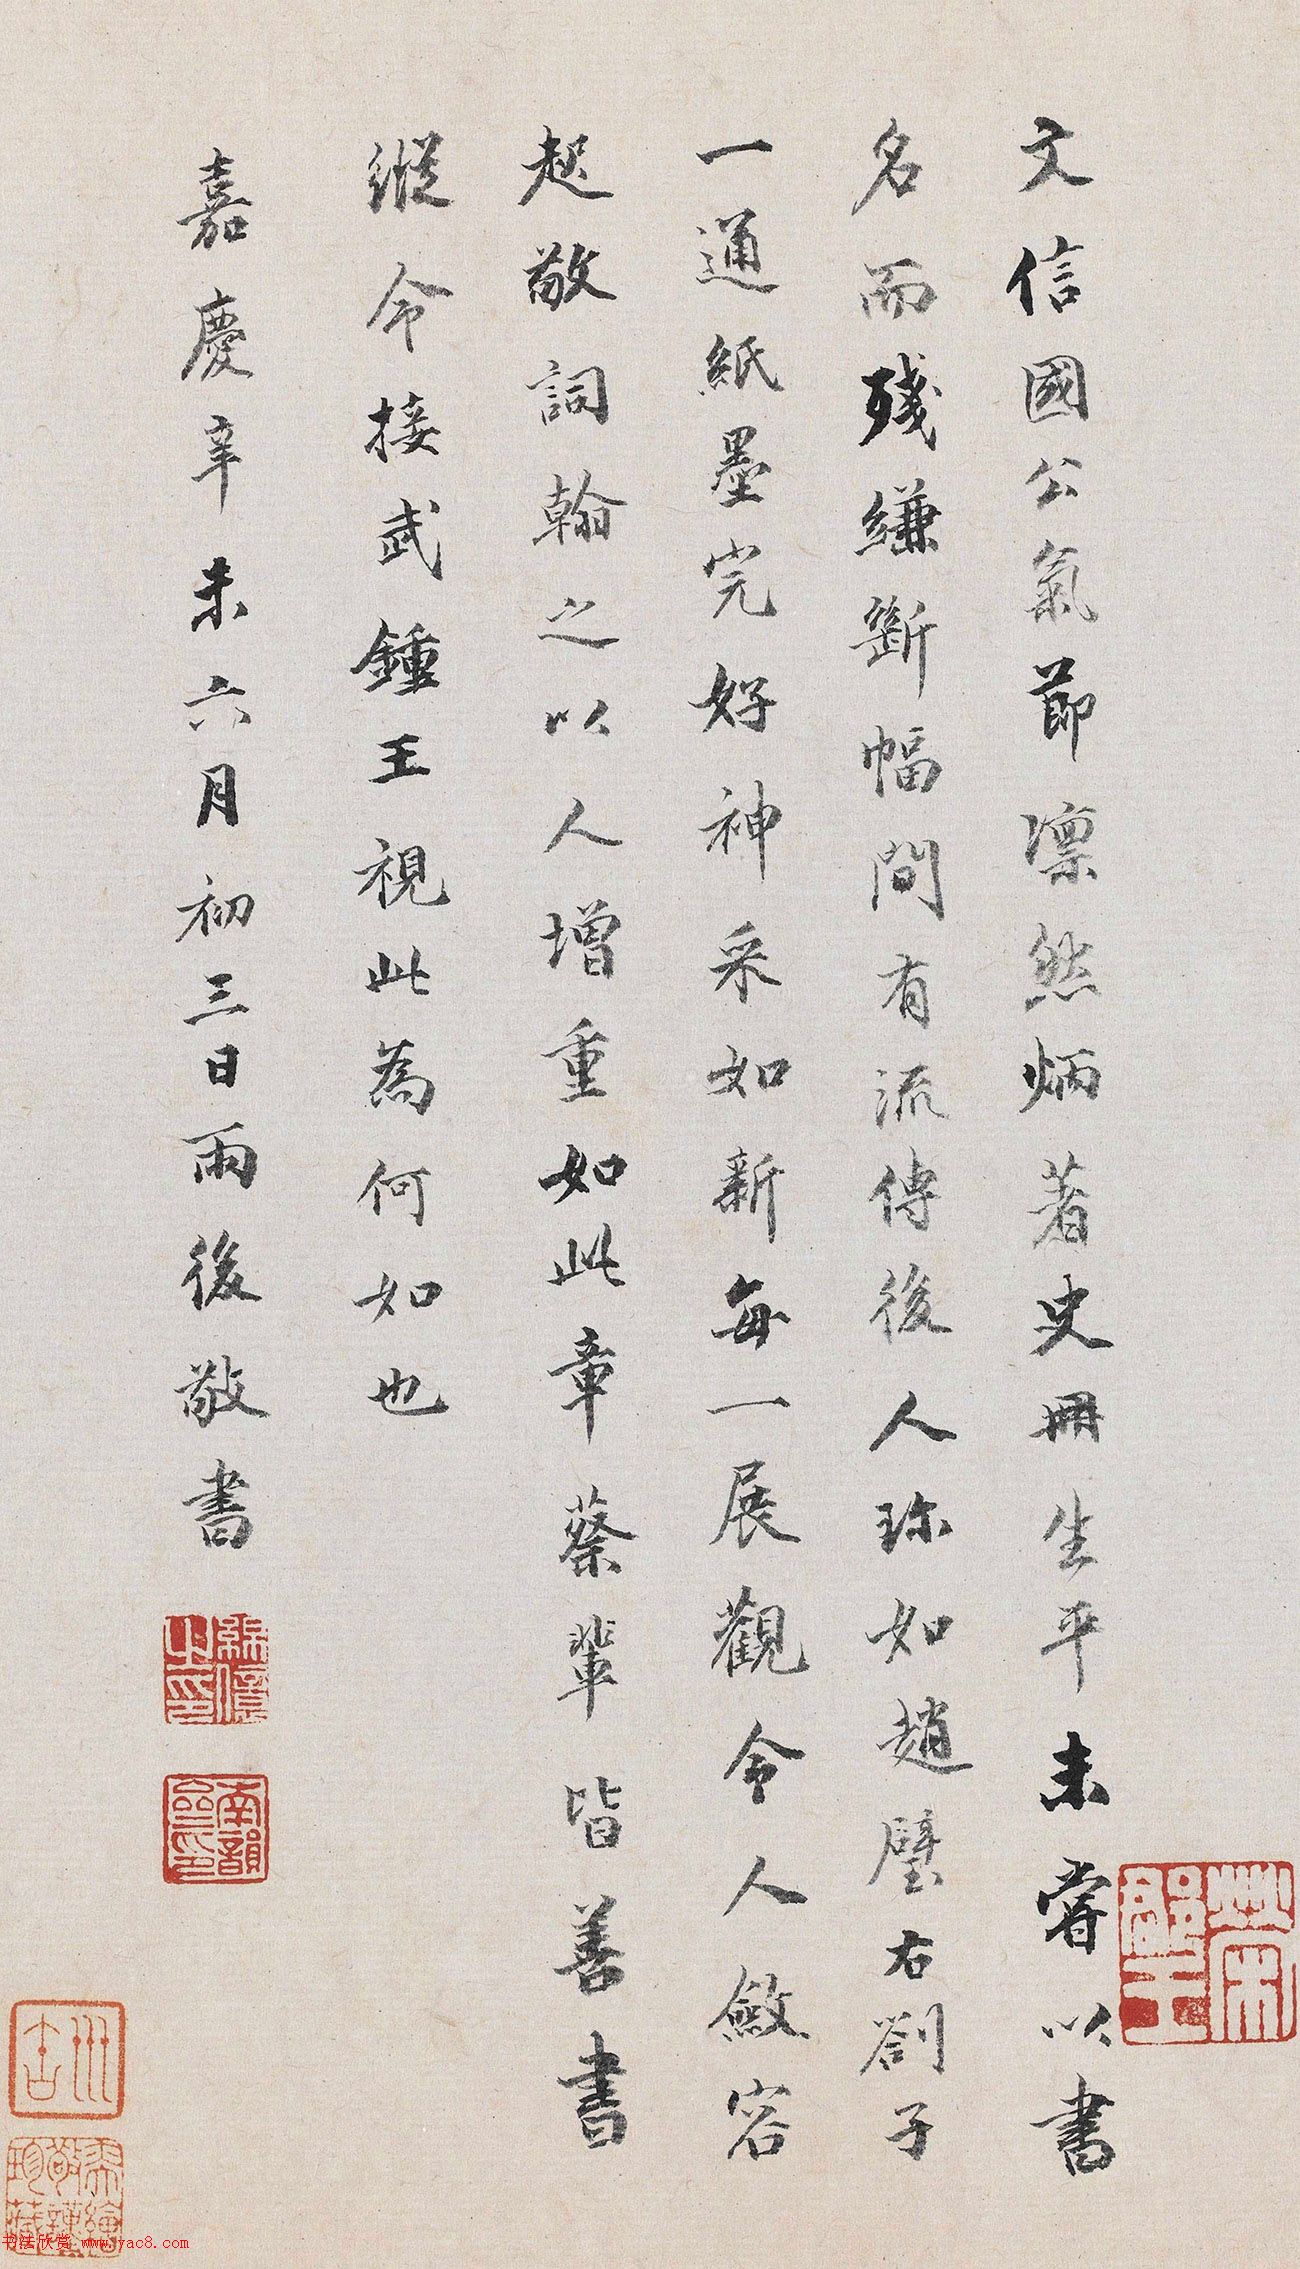 文信國公氣節凛然炳著史冊生平未嘗以書
名而殘縑斷幅間有流傳後人珎如趙璧右劄子
一通紙墨完好神采如新每一展觀令人斂容
起敬詞翰之以人增重如此章蔡輩皆善書
縱令接武鍾王視此為何如也
嘉慶辛未六月初三日雨後敬書
南韻
书法欣赏 www.yac8.com